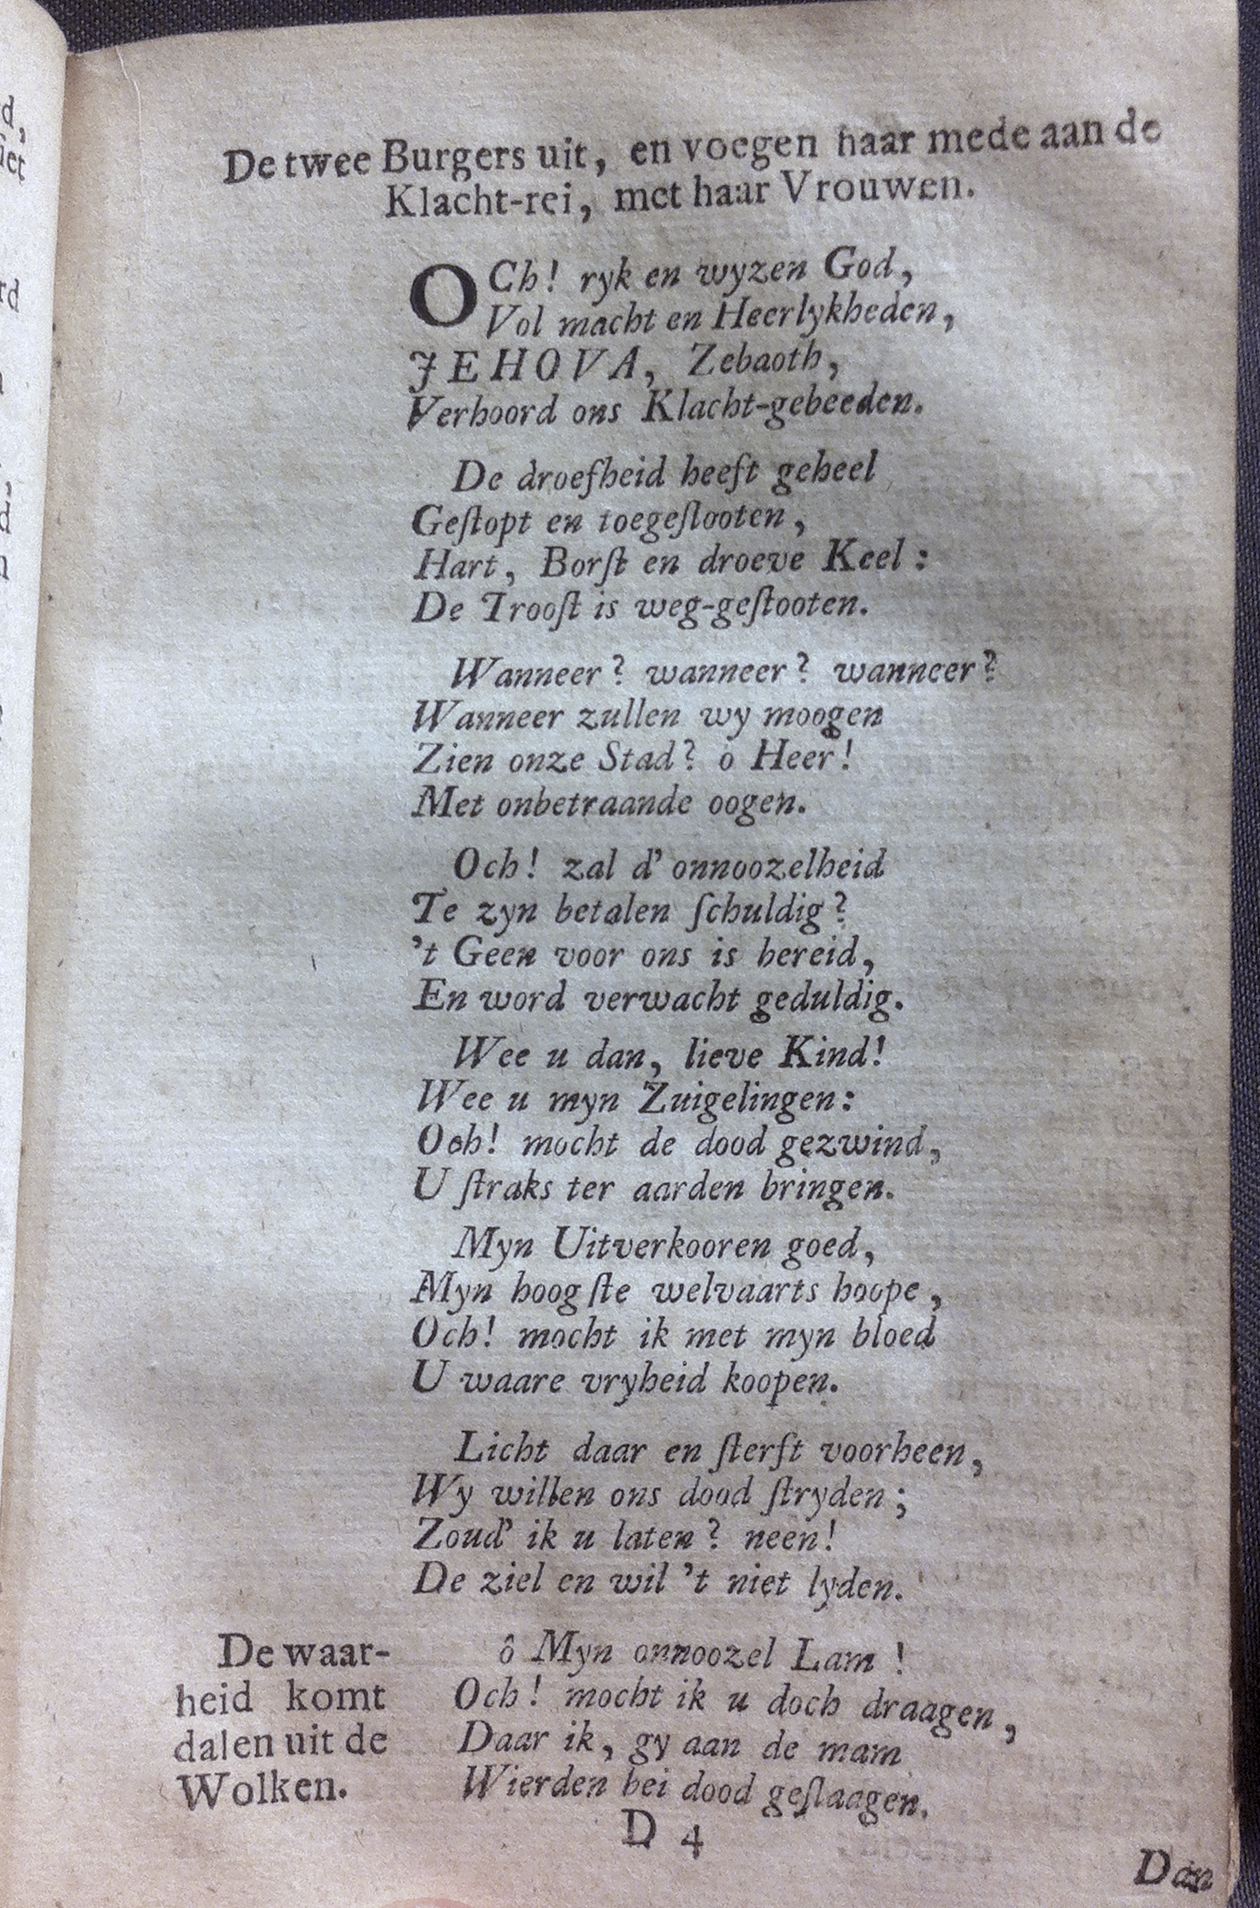 De twee Burgers uit, en voegen haar mede aan de
Klacht-rei, met haar Vrouwen.
OCh! ryk en wyzen God,
Vol macht en Heerlykheden,
JEHOVA, Zebaoth,
Verhoord ons Klacht-gebeeden.
De droefheid heeft geheel
Geſtopt en toegeſlooten,
Hart, Borſt en droeve Keel:
De Trooſt is weg-geſtooten.
Wanneer? wanneer? wanneer?
Wanneer zullen wy moogen
Zien onze Stad? o Heer!
Met onbetraande oogen.
Och! zal d' onnoozelheid
Te zyn betalen ſchuldig?
't Geen voor ons is bereid,
En word verwacht geduldig.
Wee u dan, lieve Kind!
Wee u myn Zuigelingen:
Och! mocht de dood gezwind,
U ſtraks ter aarden bringen.
Myn Uitverkooren goed,
Myn hoogſte welvaarts hoope,
Och! mocht ik met myn bloed
U waare vryheid koopen.
Licht daar en ſterft voorheen,
Wy willen ons dood ſtryden;
Zoud' ik u laten? neen!
De ziel en wil 't niet lyden.
De waar-
heid komt
dalen uit de
Wolken.
ô Myn onnoozel Lam!
Och! mocht ik u doch draagen,
Daar ik, gy aan de mam
Wierden bei dood geſlaagen.
D 4
Dan